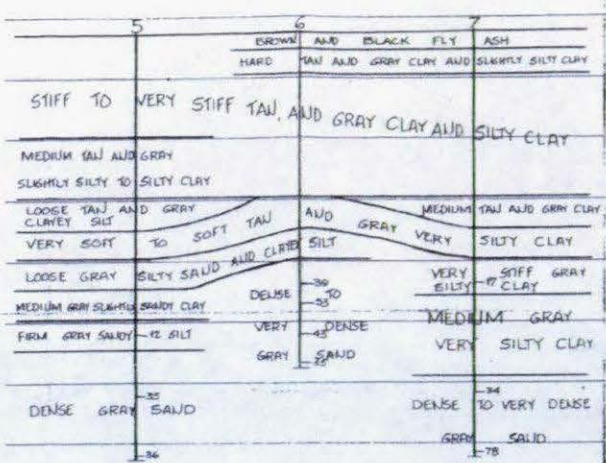 5 6 7
BROWN AND BLACK FLY ASH
HARD TAN AND GRAY CLAY AND SLIGHTLY SILTY CLAY
STIFF TO VERY STIFF TAN AND GRAY CLAY AND SILTY CLAY
MEDIUM TAN AND GRAY
SLIGHTLY SILTY TO SILTY CLAY
LOOSE TAN AND GRAY
CLAYEY SILT
MEDIUM TAN AND GRAY CLAY
VERY SOFT TO SOFT TAN AND GRAY VERY SILTY CLAY
LOOSE GRAY SILTY SAND AND CLAYEY SILT
VERY STIFF GRAY
SILTY 17 CLAY
MEDIUM GRAY SLIGHTLY SANDY CLAY
DENSE TO
VERY DENSE
GRAY SAND
53
43
MEDIUM GRAY
VERY SILTY CLAY
FIRM GRAY SANDY 12 SILT
35
DENSE GRAY SAND
36
34
DENSE TO VERY DENSE
GRAY SAND
78